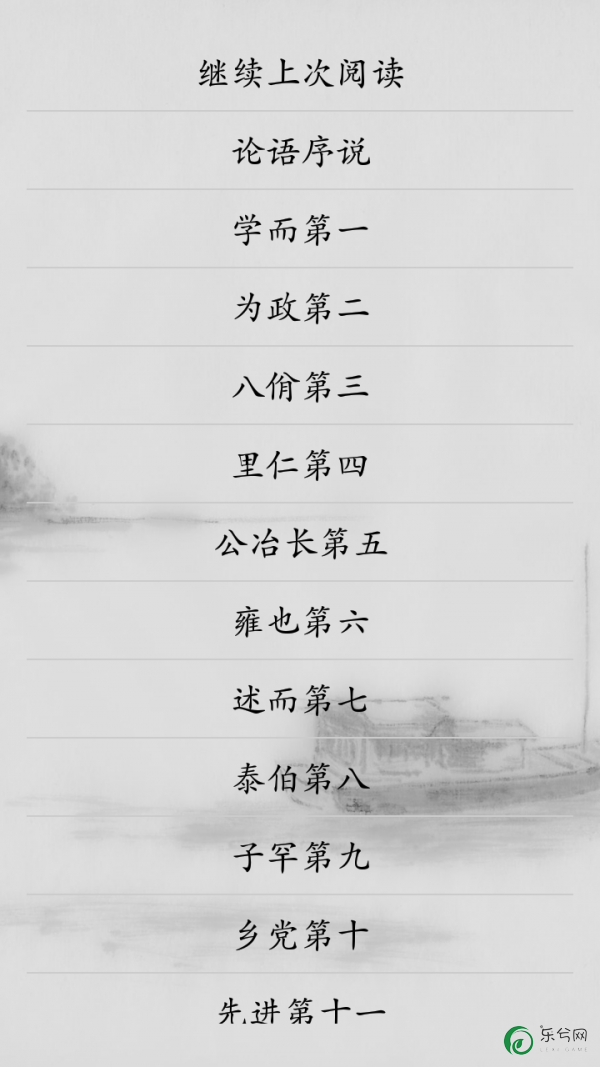 继续上次阅读
论语序说
学而第一
为政第二
八佾第三
里仁第四
公冶长第五
雍也第六
述而第七
泰伯第八
子罕第九
乡党第十
先进第十一
乐兮网